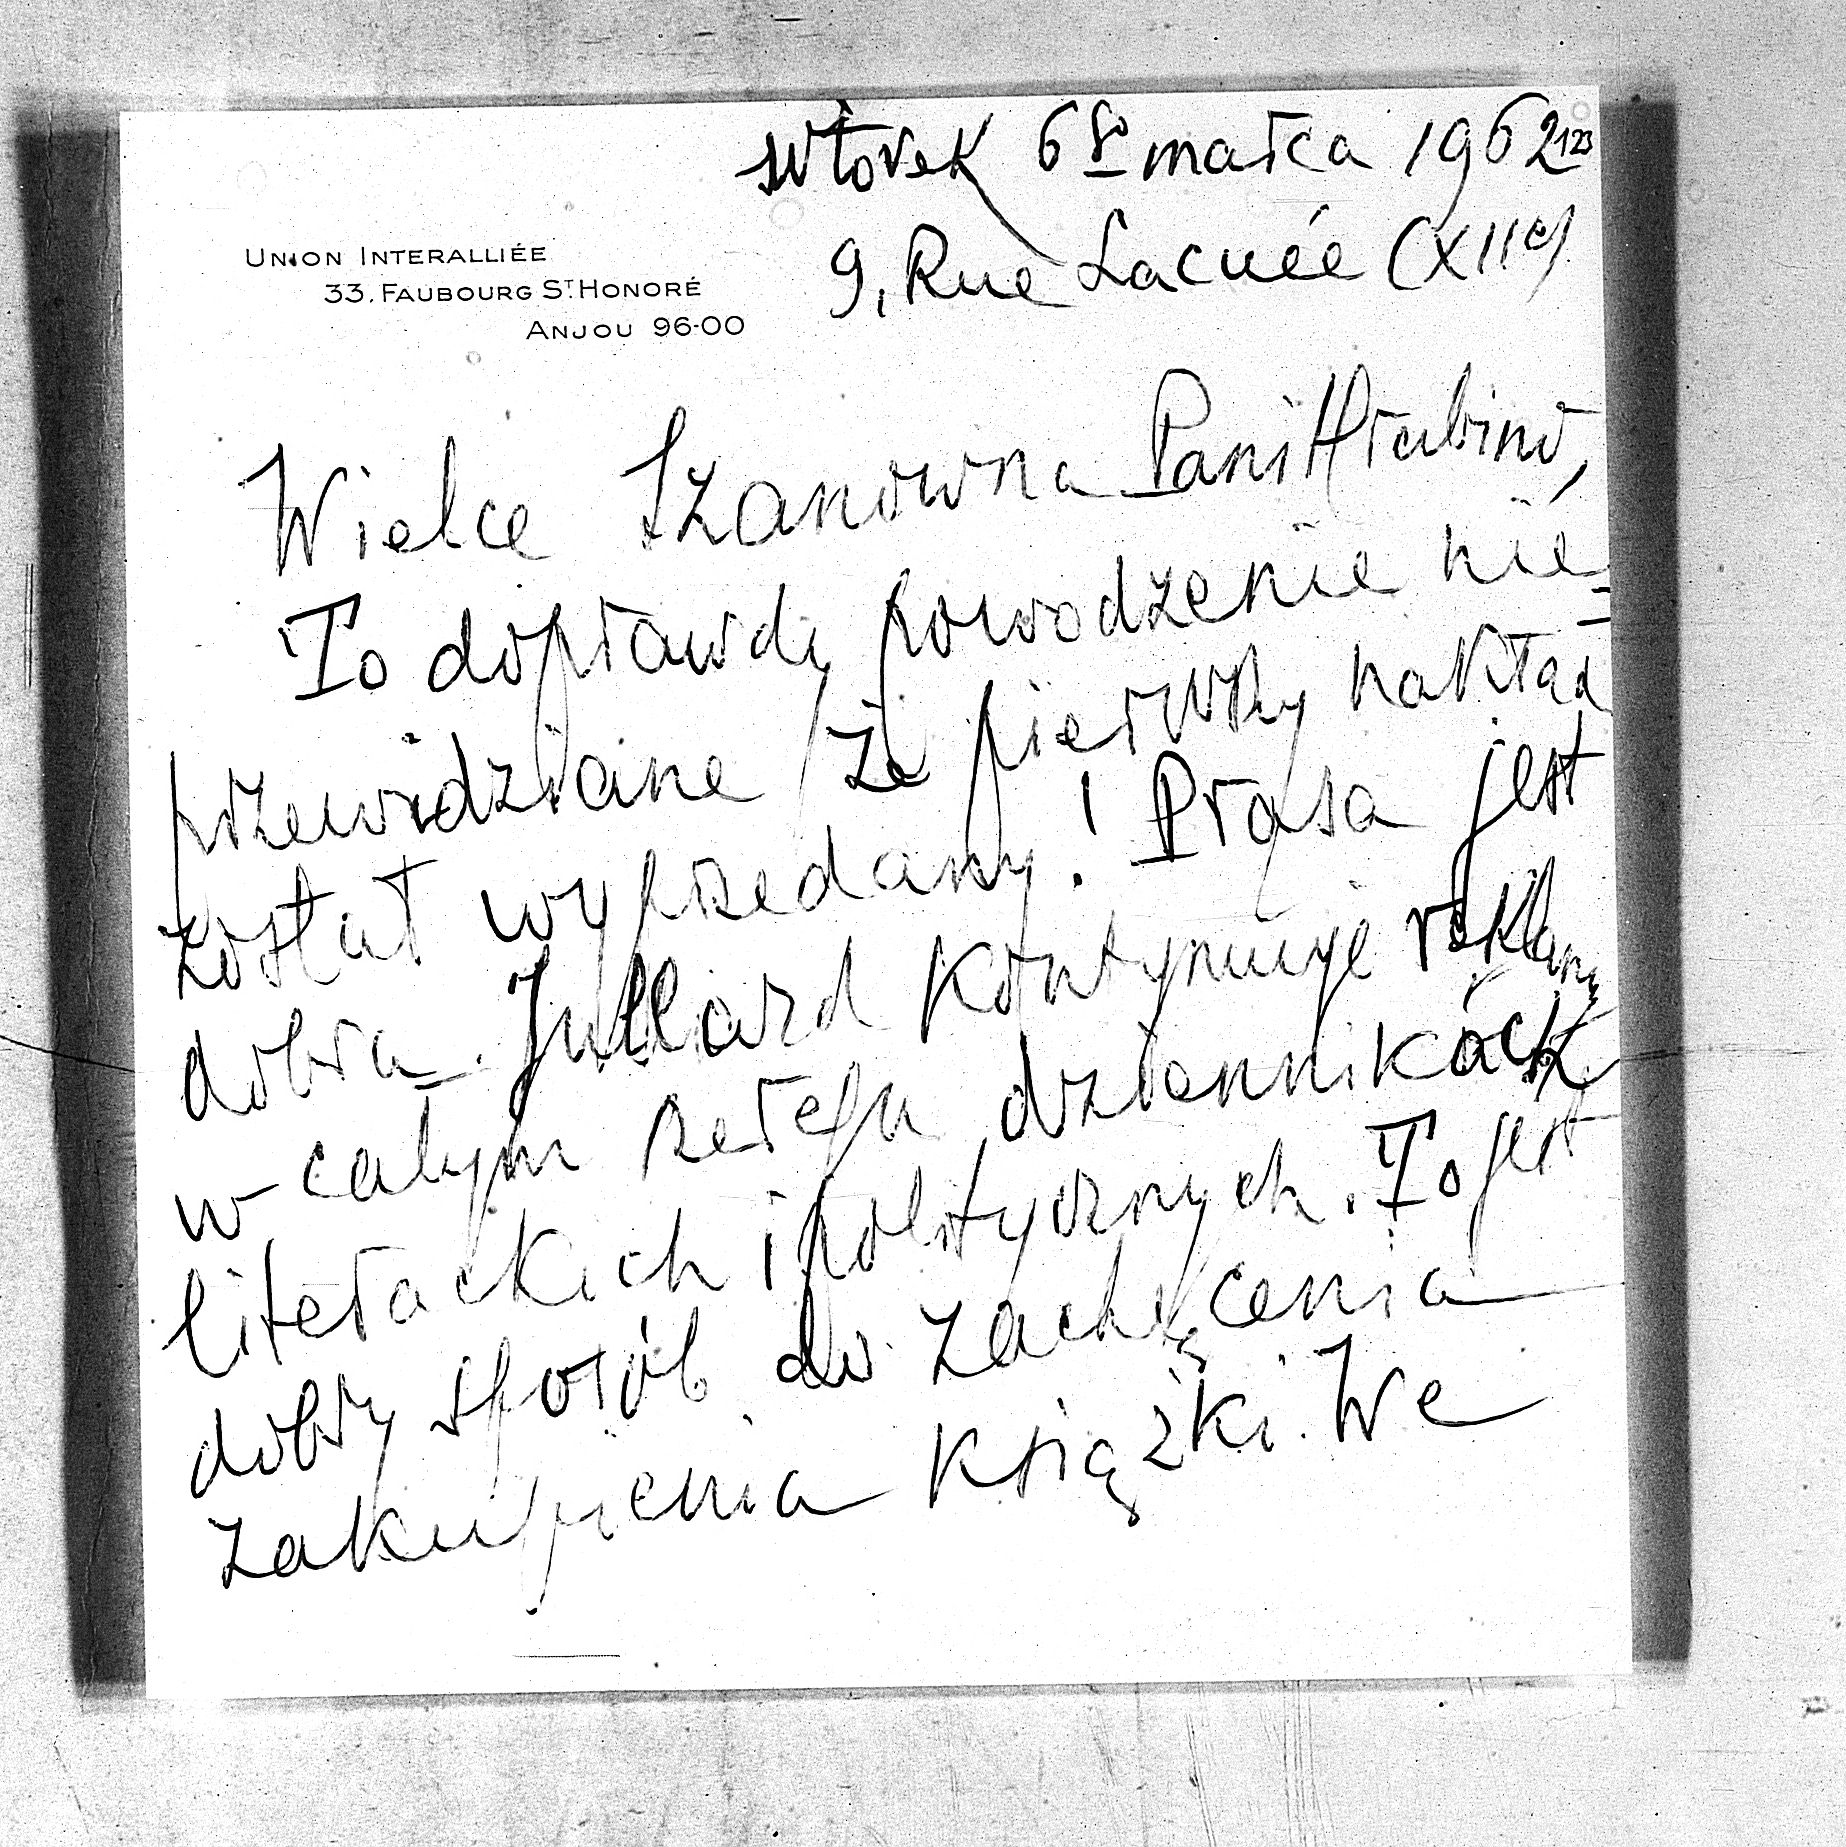 wtorek 6go marca 1962 123
9, Rue Lacuée (XIIe)
UNION INTERALLIÉE
33. FAUBOURG ST. HONORÉ
ANJOU 96-00
Wielce Szanowna Pani Hrabino,
To doprawdy powodzenie nie-
przewidziane że pierwszy nakład
został wyprzedany! Prasa jest
dobra. Julliard kontynuuje reklamy
w całym szeregu dziennikach
literackich i politycznych. To jest
dobry sposób do zachęcenia
zakupienia książki. We